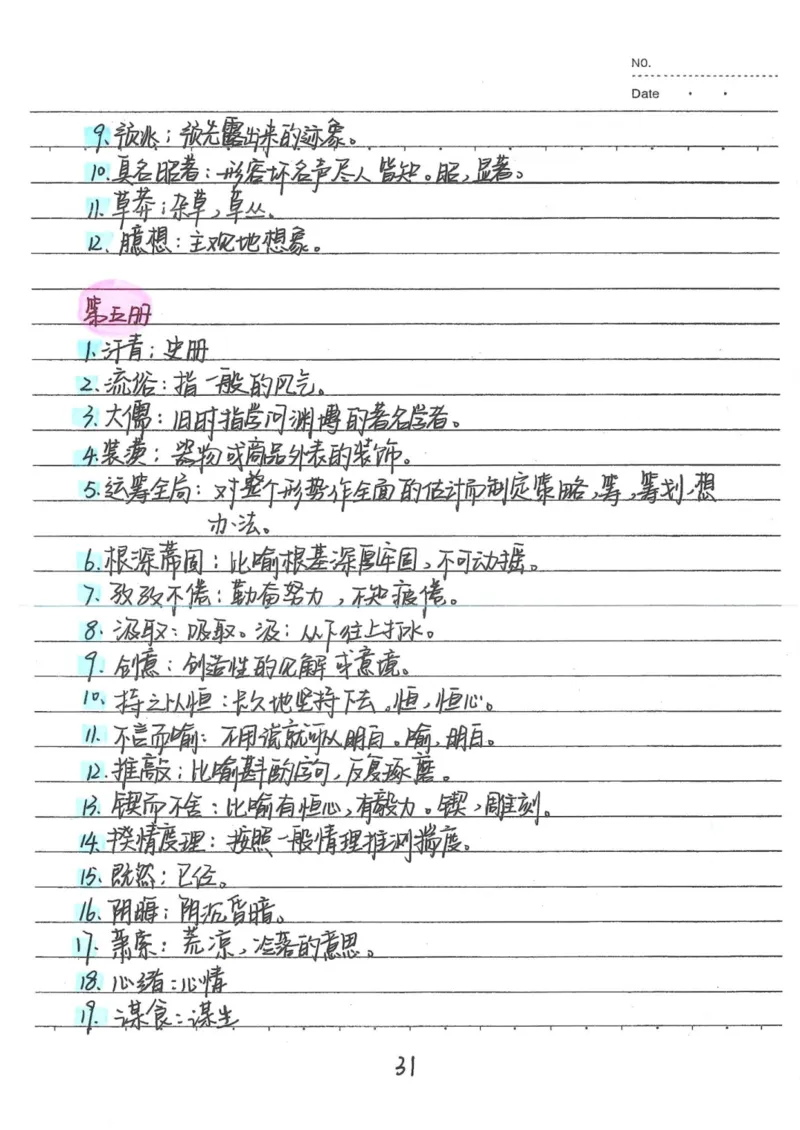 NO.
Date
9. 预兆：预先露出来的迹象。
10. 臭名昭著：形容坏名声尽人皆知。昭，显著。
11. 草莽：杂草，草丛。
12. 臆想：主观地想象。
第五册
1. 汗青：史册
2. 流俗：指一般的风气。
3. 大儒：旧时指学问渊博的著名学者。
4. 装潢：器物或商品外表的装饰。
5. 运筹全局：对整个形势作全面的估计而制定策略，筹，筹划，想
办法。
6. 根深蒂固：比喻根基深厚牢固，不可动摇。
7. 孜孜不倦：勤奋努力，不知疲倦。
8. 汲取：吸取。汲：从下往上打水。
9. 创意：创造性的见解或意境。
10. 持之以恒：长久地坚持下去。恒，恒心。
11. 不言而喻：不用说就可以明白。喻，明白。
12. 推敲：比喻斟酌字句，反复琢磨。
13. 锲而不舍：比喻有恒心，有毅力。锲，雕刻。
14. 揆情度理：按照一般情理推测揣度。
15. 既然：已经。
16. 阴晦：阴沉昏暗。
17. 萧索：荒凉，冷落的意思。
18. 心绪：心情
19. 谋食：谋生
31